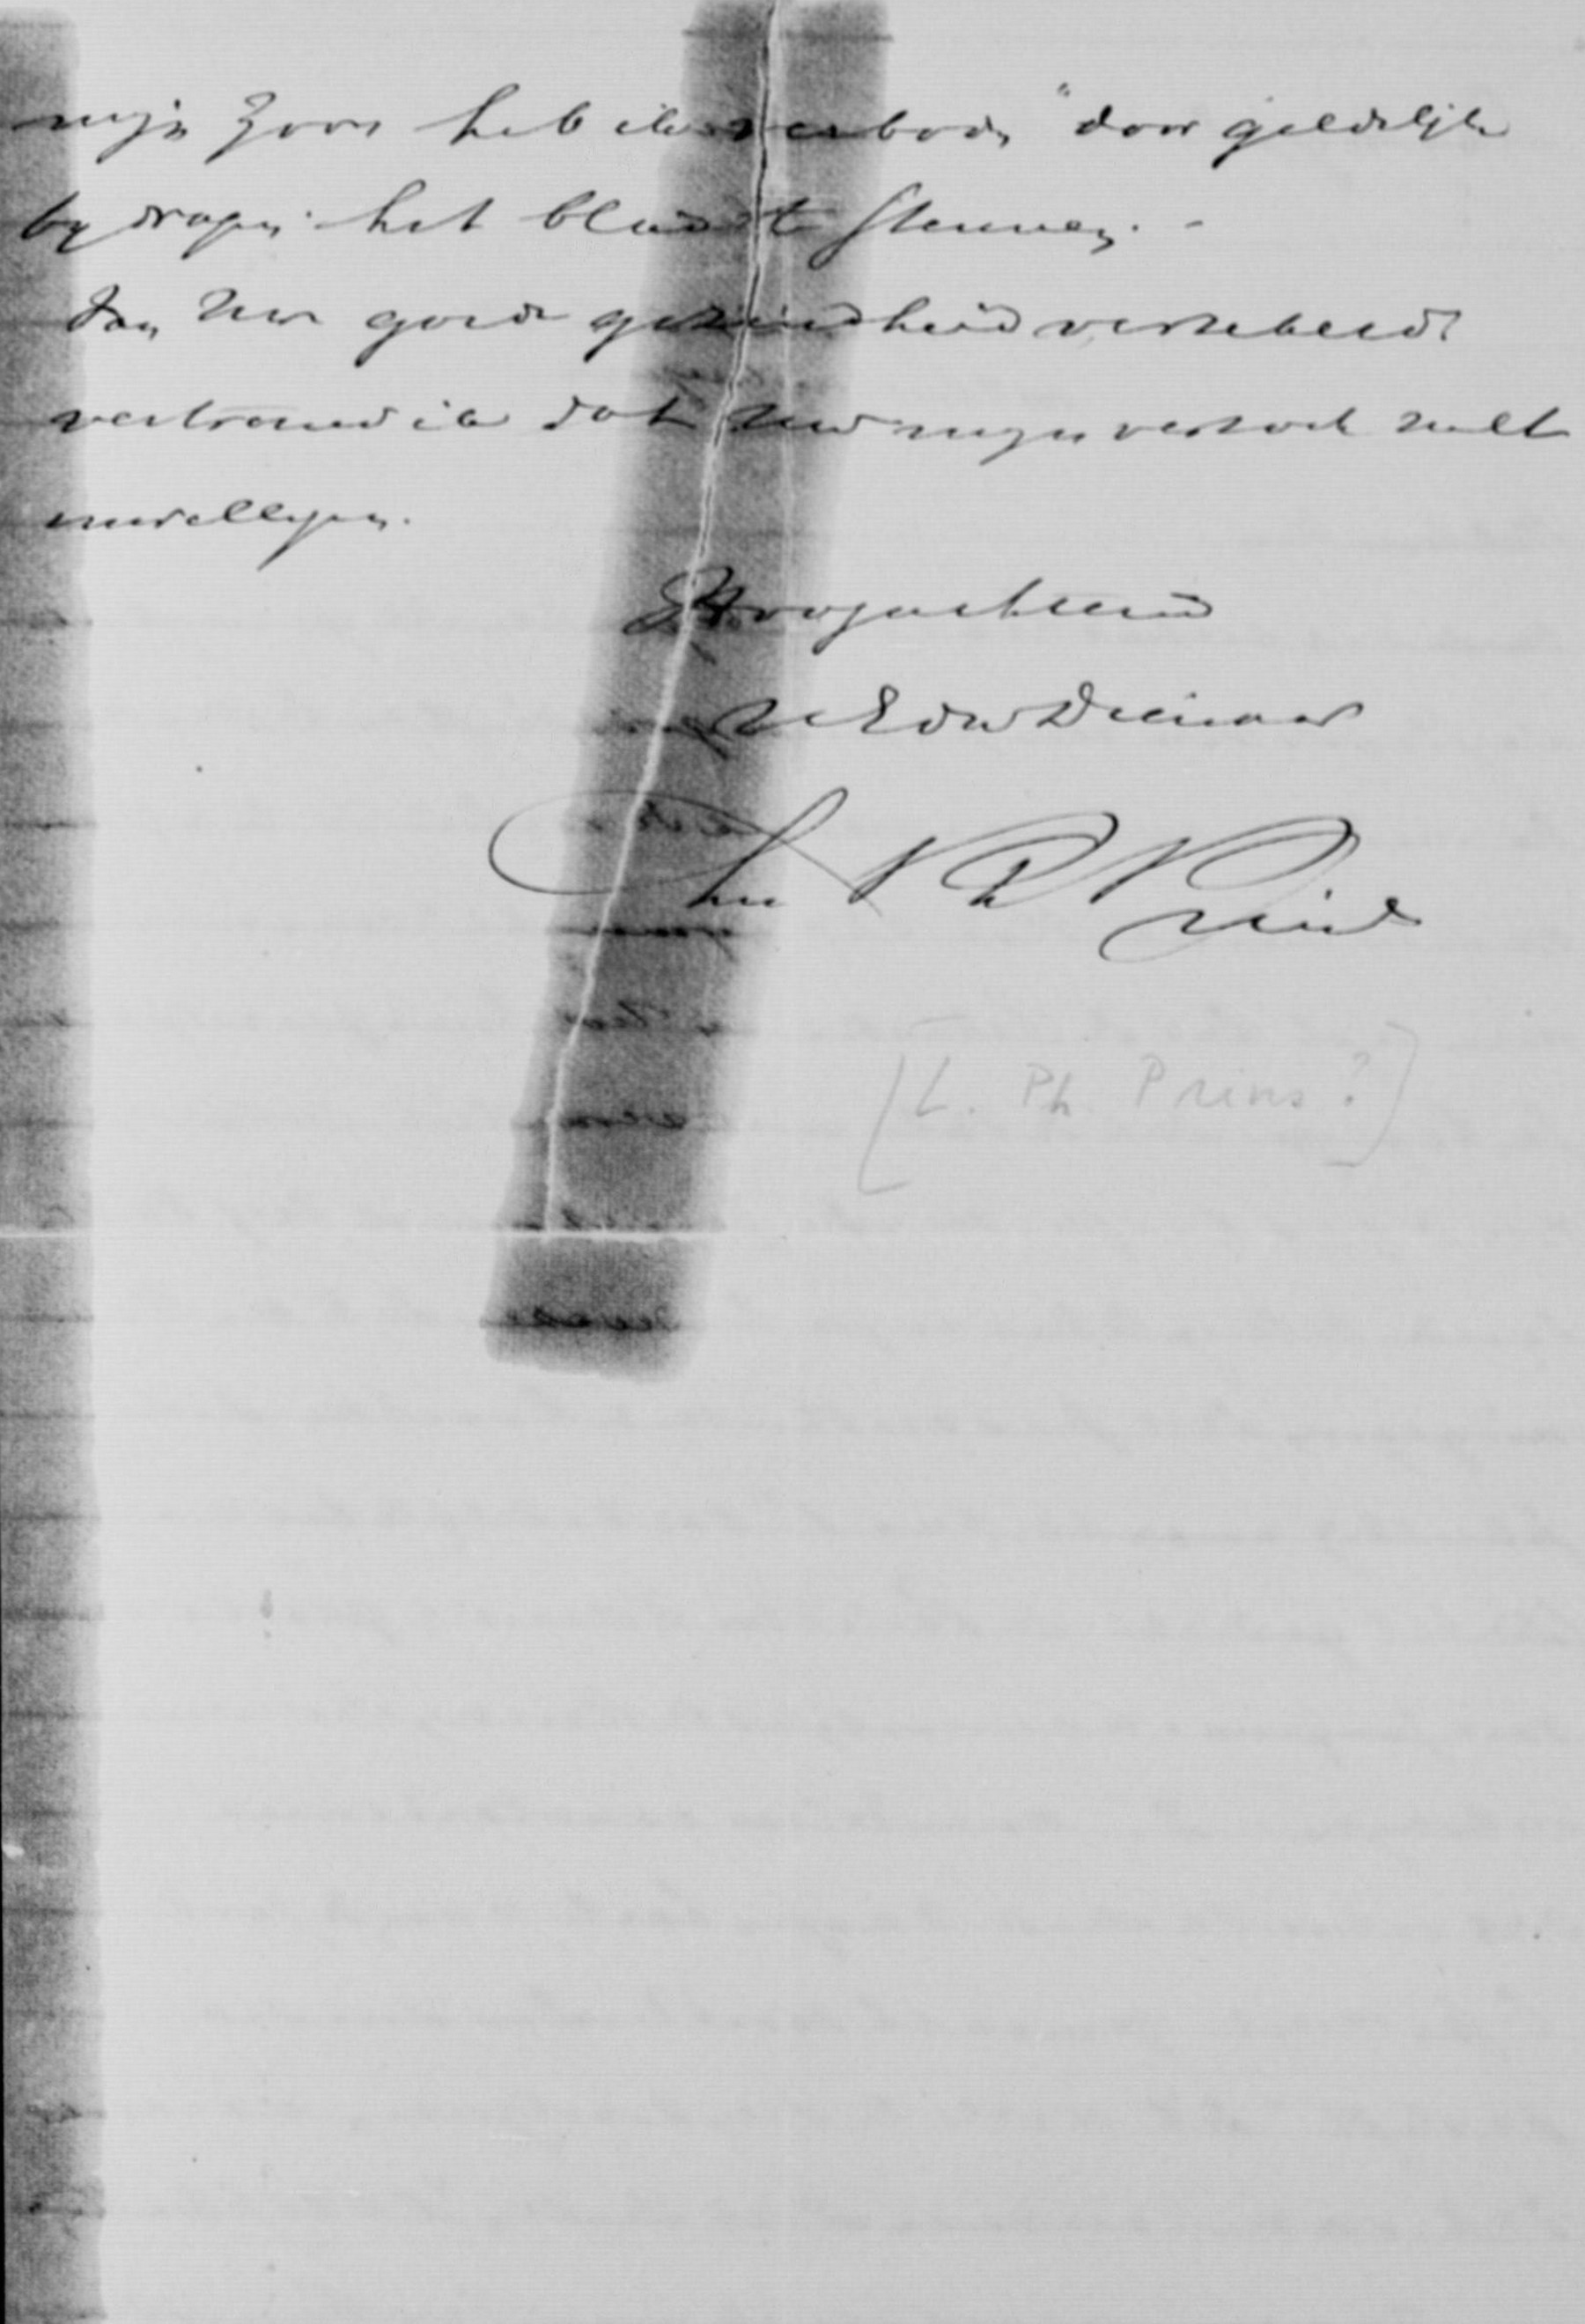 mijn zoon heb ik verboden "door geldelijke
bydragen het blad te steunen. -
Van Uw goede gezindheid verzekerd
vertrouw ik dat Uw mijn verzoek zult
inwilligen.
Hoogachtend
UEdw Dienaar
L Ph Prins
[L. Ph. Prins?]